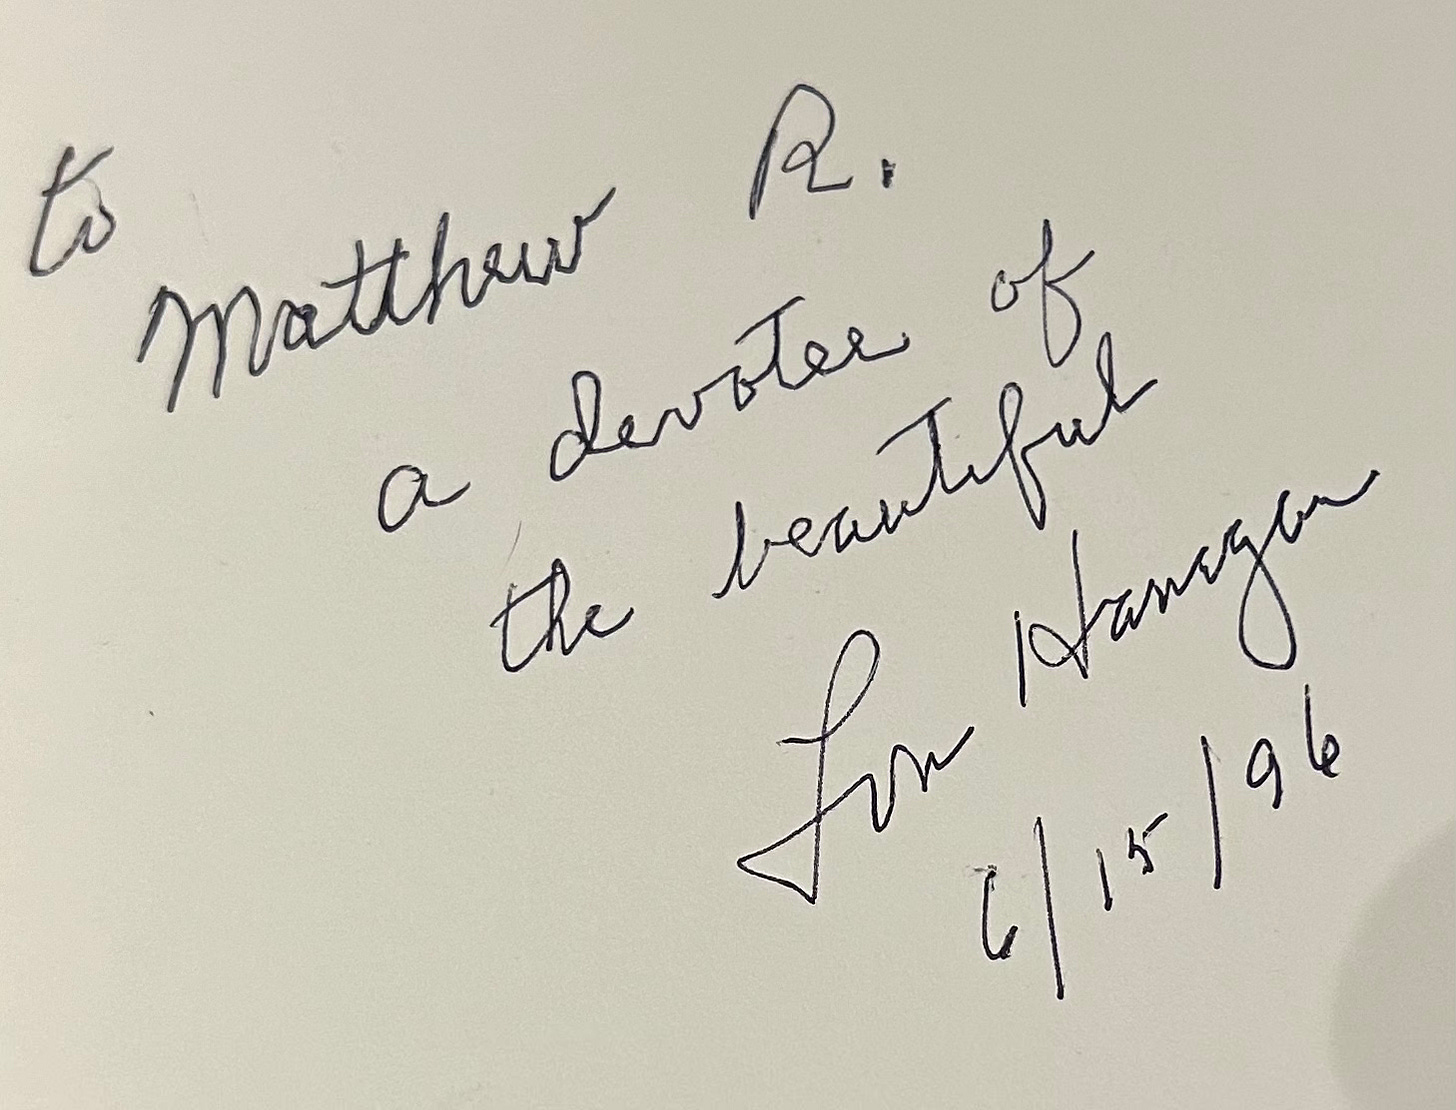 to
Matthew R.
a devotee of
the beautiful
6/15/96